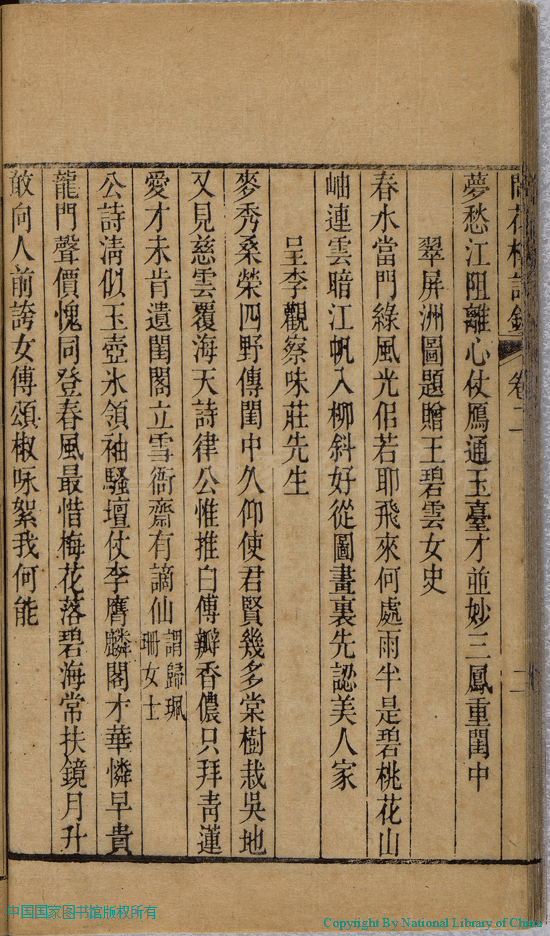 花村詩鈔 卷二 二
夢愁江阻離心仗鴈通玉臺才並妙三鳳重閨中
翠屏洲圖題贈王碧雲女史
春水當門綠風光佀若耶飛來何處雨半是碧桃花山
岫連雲暗江帆入柳斜好從圖畫裏先認美人家
呈李觀察味莊先生
麥秀桑榮四野傳閨中久仰使君賢幾多棠樹栽吳地
又見慈雲覆海天詩律公惟推白傅瓣香儂只拜靑蓮
愛才未肯遺閨閣立雪衙齋有謫仙謂歸珮珊女士
公詩淸似玉壺氷領袖騷壇仗李膺麟閣才華憐早貴
龍門聲價愧同登春風最惜梅花落碧海常扶鏡月升
敢向人前誇女傅頌椒咏絮我何能
中国国家图书馆版权所有
Copyright By National Library of China